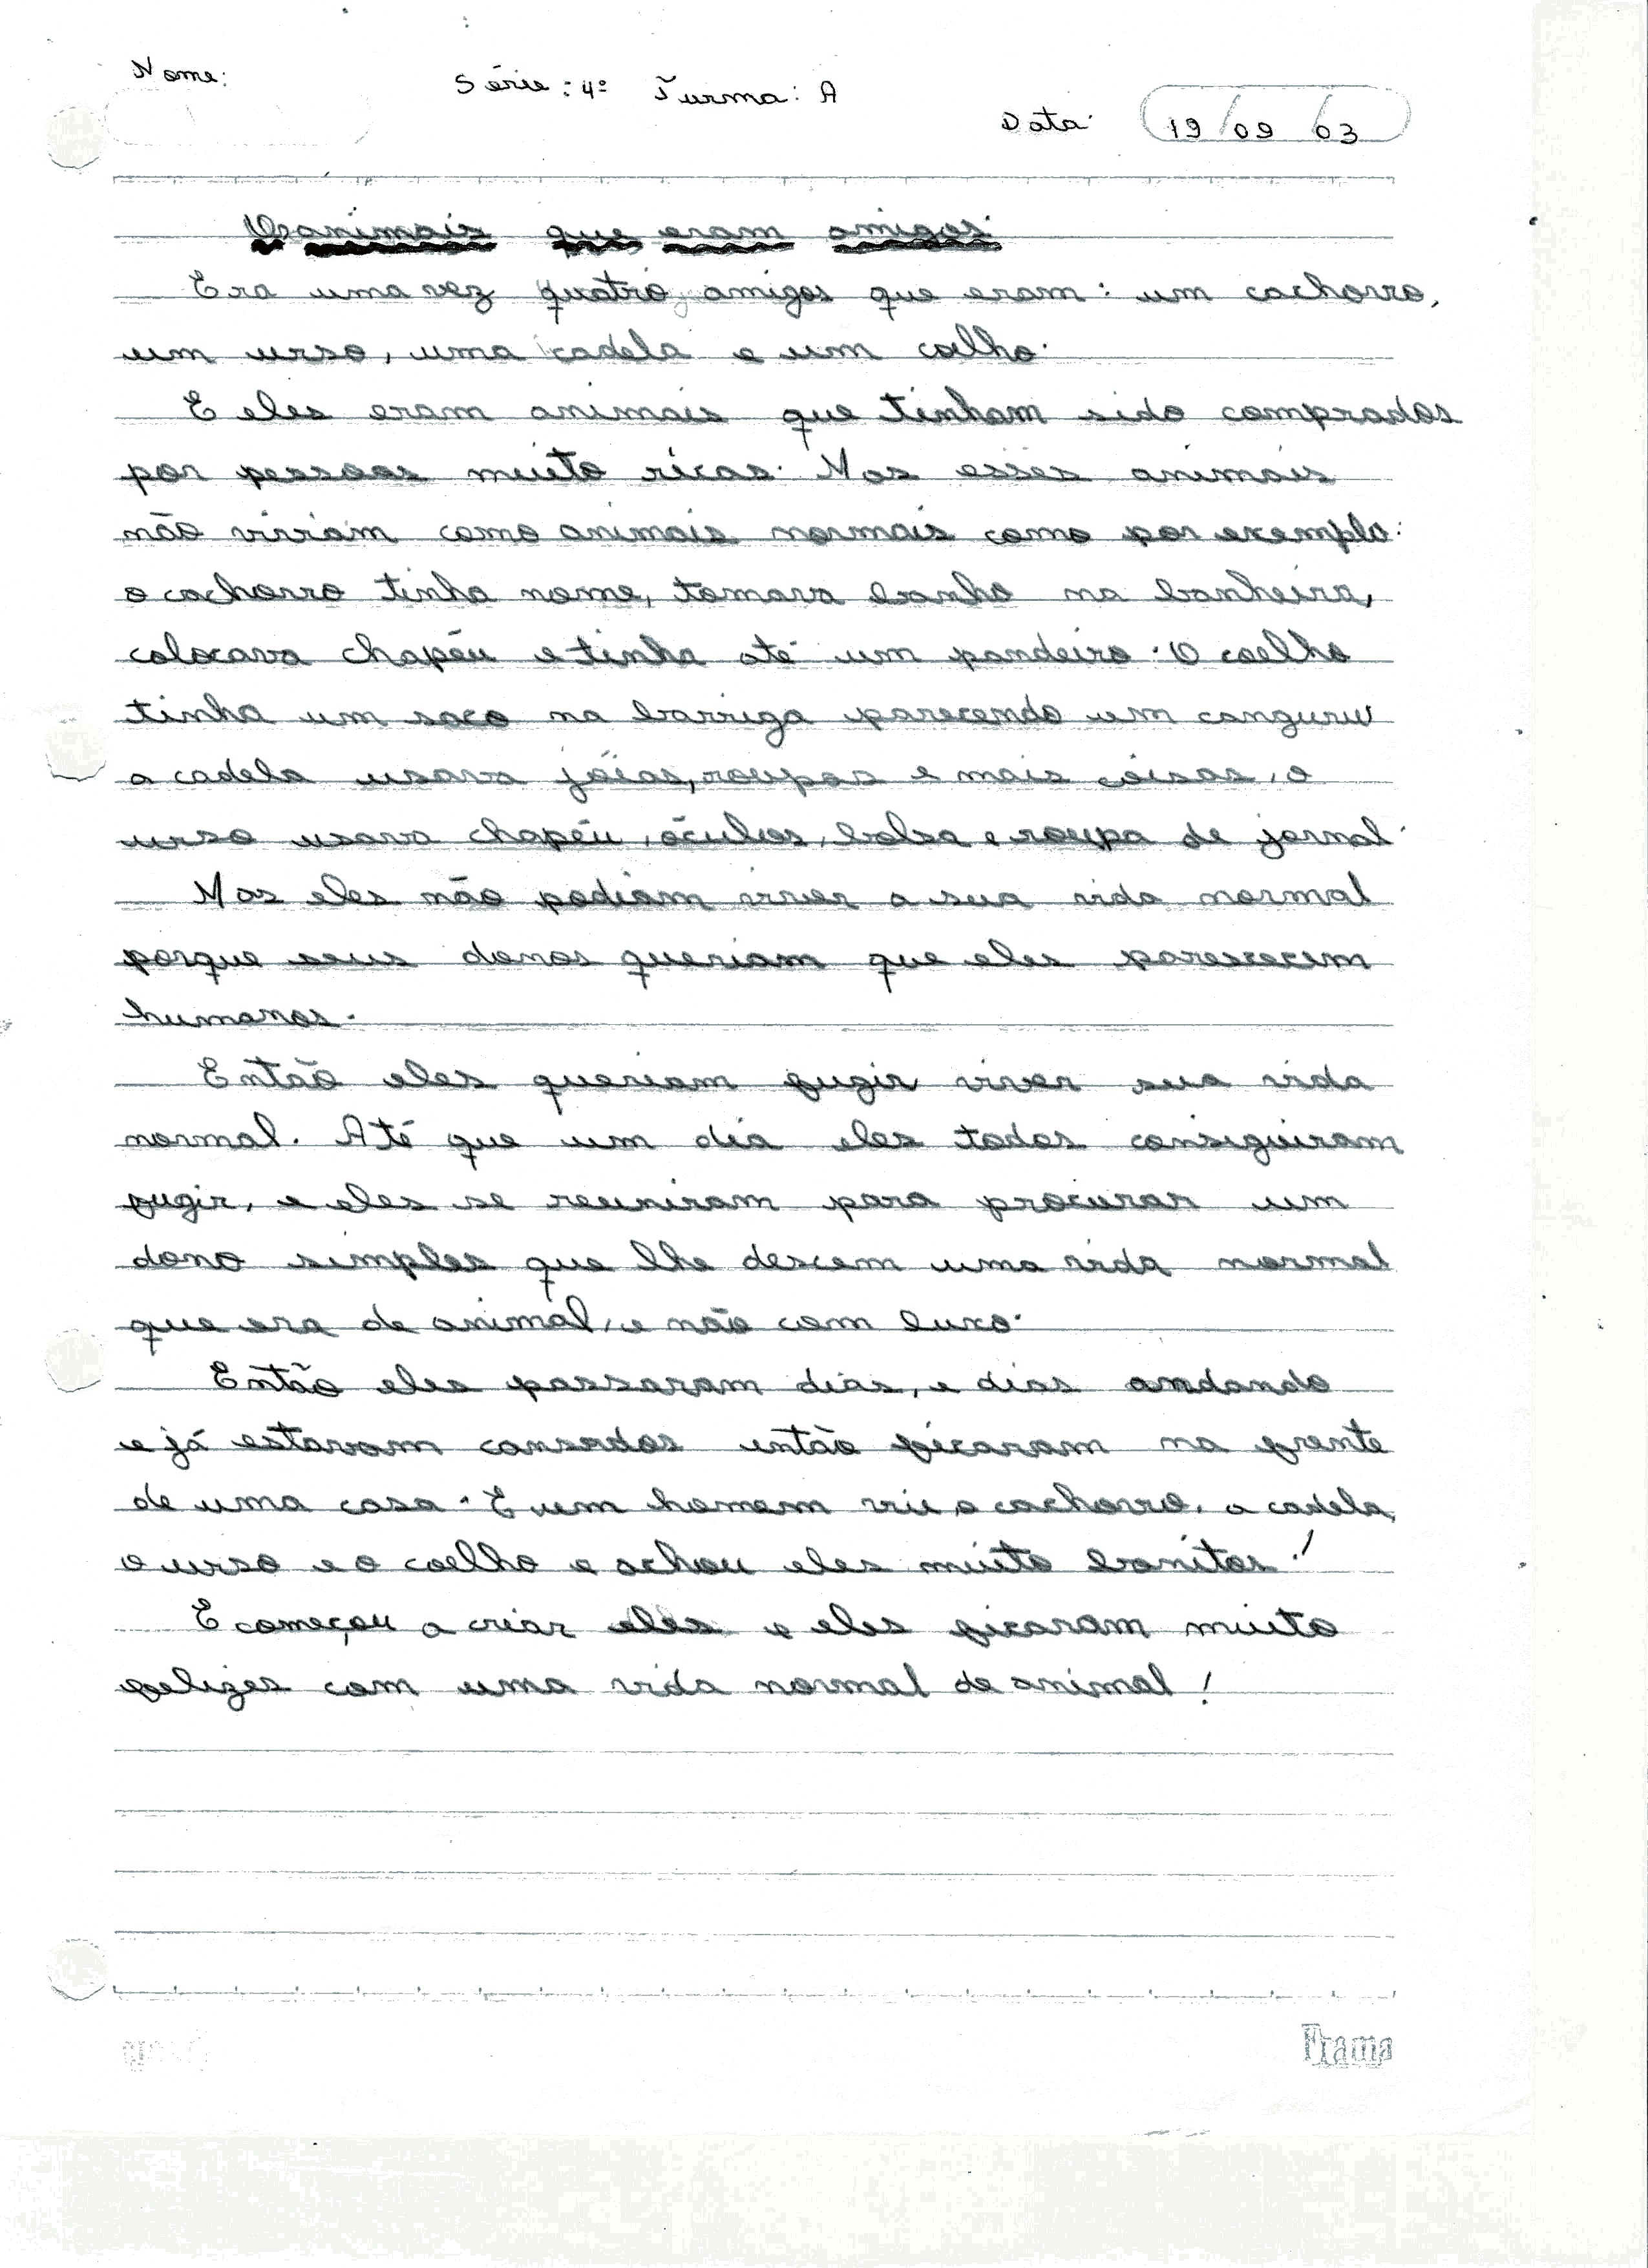 Nome:
Série: 4ª Turma: A
Data: 19/09/03
Os animais que eram amigos.
Era uma vez quatro amigos que eram: um cachorro,
um urso, uma cadela e um coelho.
E eles eram animais que tinham sido comprados
por pessoas muito ricas. Mas esses animais
não viviam como animais normais como por exemplo:
o cachorro tinha nome, tomava banho na banheira,
colocava chapéu e tinha até um pandeiro. O coelho
tinha um saco na barriga parecendo um canguru
a cadela usava jóias, roupas e mais coisas, o
urso usava chapéu, óculos, bolsa e roupa de jornal.
Mas eles não podiam viver a sua vida normal
porque seus donos queriam que eles parescecem
humanos.
Então eles queriam fugir viver sua vida
normal. Até que um dia eles todos consiguiram
fugir, e eles se reuniram para procurar um
dono simples que lhe descem uma vida normal
que era de animal, e não com luxo.
Então eles passaram dias, e dias andando
e já estavam cansados então ficaram na frente
de uma casa. E um homem viu o cachorro, a cadela,
o urso e o coelho e achou eles muito bonitos!
E começou a criar eles e eles ficaram muito
felizes com uma vida normal de animal!
Frama